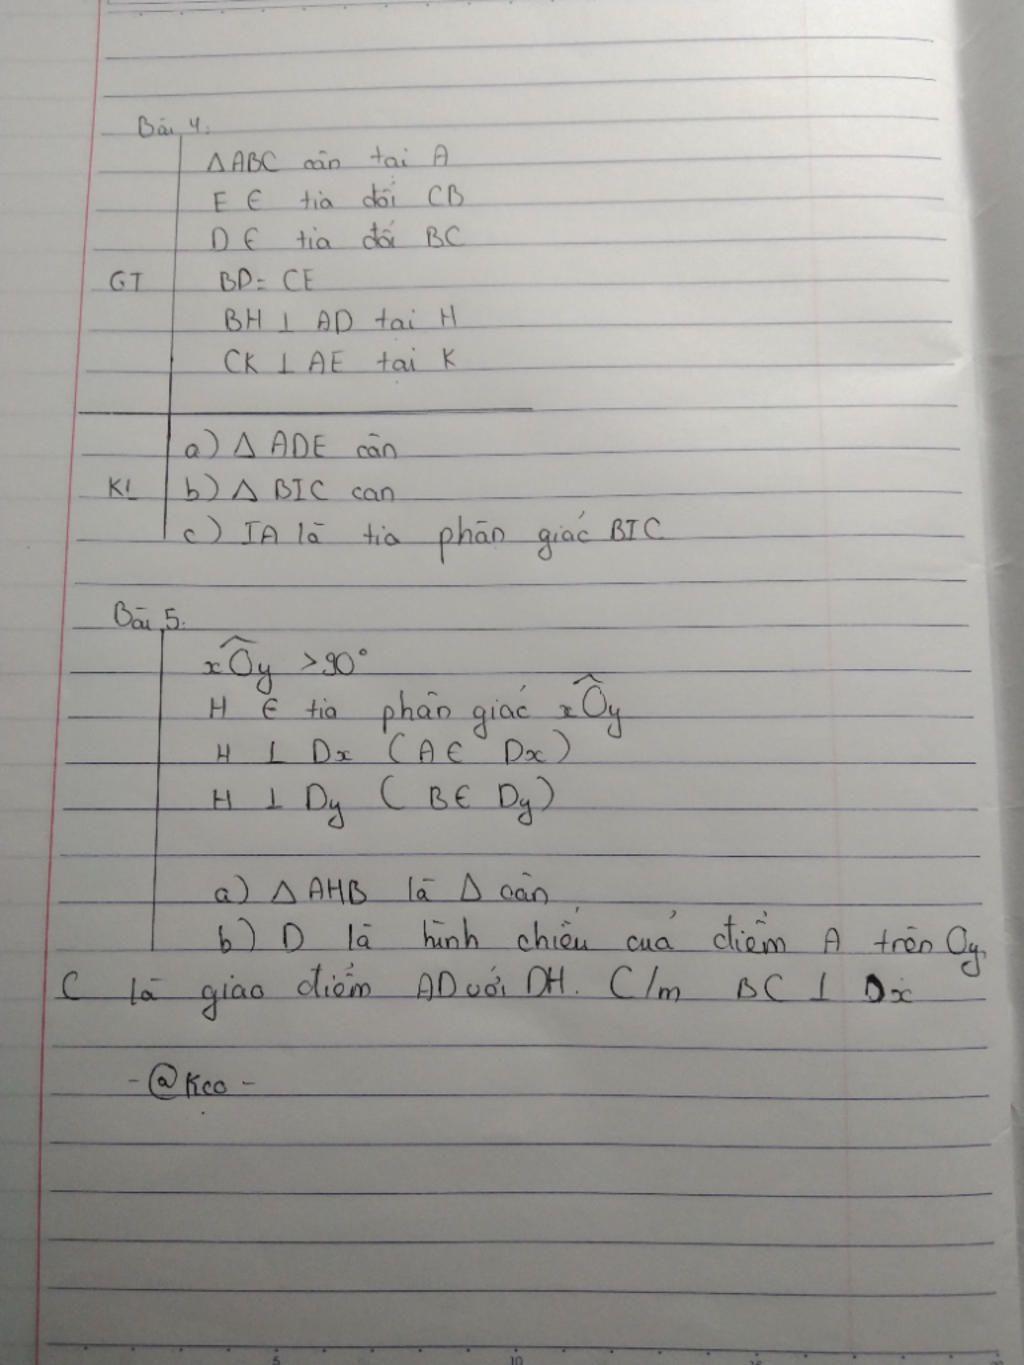 Bài 4:
ΔABC cân tại A
E ∈ tia đối CB
D ∈ tia đối BC
GT BD = CE
BH ⊥ AD tại H
CK ⊥ AE tại K
a) Δ ADE cân
KL b) Δ BIC can
c) IA là tia phân giác BIC
Bài 5:
xÔy > 90°
H ∈ tia phân giác xÔy
H ⊥ Dx (A ∈ Dx)
H ⊥ Dy (B ∈ Dy)
a) Δ AHB là Δ cân
b) D là hình chiếu của điểm A trên Oy,
C là giao điểm AD với DH. C/m BC ⊥ Dx
- @Keo -
5 10